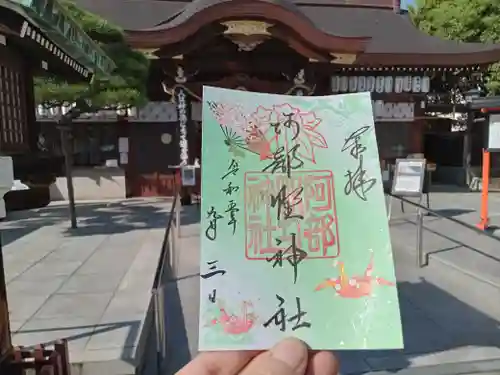 奉拝
阿部野神社
阿部野神社
令和七年
九月三日